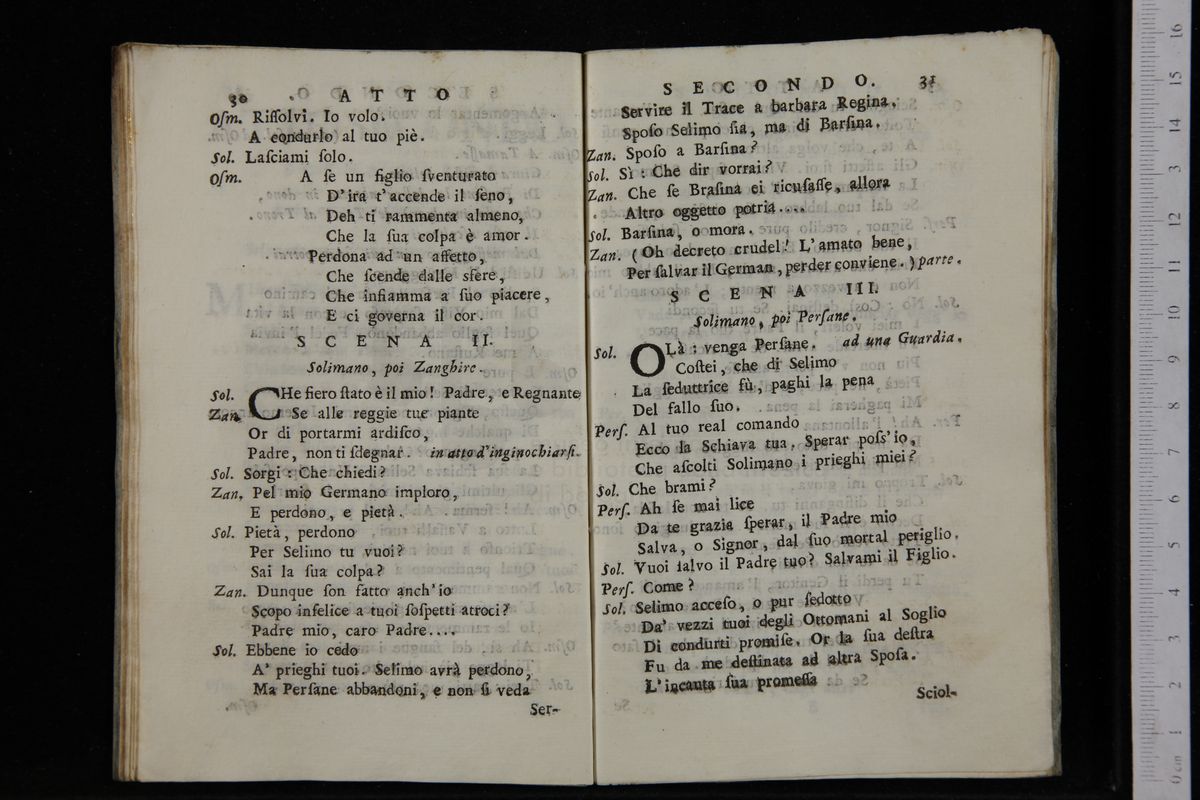 30 ATTO
Oſm. Riſſolvi. Io volo.
A condurlo al tuo piè.
Sol. Laſciami ſolo.
Oſm. A ſe un figlio ſventurato
D'ira t'accende il ſeno,
Deh ti rammenta almeno,
Che la ſua colpa è amor.
Perdona ad un affetto,
Che ſcende dalle sfere,
Che infiamma a ſuo piacere,
E ci governa il cor.
SCENA II.
Solimano, poi Zanghire.
Sol. CHe fiero ſtato è il mio! Padre, e Regnante
Zan. Se alle reggie tue piante
Or di portarmi ardiſco,
Padre, non ti ſdegnar. in atto d'inginochiarſi.
Sol. Sorgi: Che chiedi?
Zan. Pel mio Germano imploro,
E perdono, e pietà.
Sol. Pietà, perdono
Per Selimo tu vuoi?
Sai la ſua colpa?
Zan. Dunque ſon fatto anch'io
Scopo infelice a tuoi ſoſpetti atroci?
Padre mio, caro Padre....
Sol. Ebbene io cedo
A' prieghi tuoi. Selimo avrà perdono,
Ma Perſane abbandoni, e non ſi veda
Ser-
SECONDO. 31
Servire il Trace a barbara Regina.
Spoſo Selimo ſia, ma di Barſina.
Zan. Spoſo a Barſina?
Sol. Sì: Che dir vorrai?
Zan. Che ſe Braſina ei ricuſaſſe, allora
Altro oggetto potria....
Sol. Barſina, o mora.
Zan. (Oh decreto crudel! L'amato bene,
Per ſalvar il German, perder conviene.) parte.
SCENA III.
Solimano, poi Perſane.
Sol. OLà: venga Perſane. ad una Guardia.
Coſtei, che di Selimo
La ſeduttrice fù, paghi la pena
Del fallo ſuo.
Perſ. Al tuo real comando
Ecco la Schiava tua. Sperar poſs'io,
Che aſcolti Solimano i prieghi miei?
Sol. Che brami?
Perſ. Ah ſe mai lice
Da te grazia ſperar, il Padre mio
Salva, o Signor, dal ſuo mortal periglio.
Sol. Vuoi ſalvo il Padre tuo? Salvami il Figlio.
Perſ. Come?
Sol. Selimo acceſo, o pur ſedotto
Da' vezzi tuoi degli Ottomani al Soglio
Di condurti promiſe. Or la ſua deſtra
Fu da me deſtinata ad altra Spoſa.
L'incauta ſua promeſſa
Sciol-